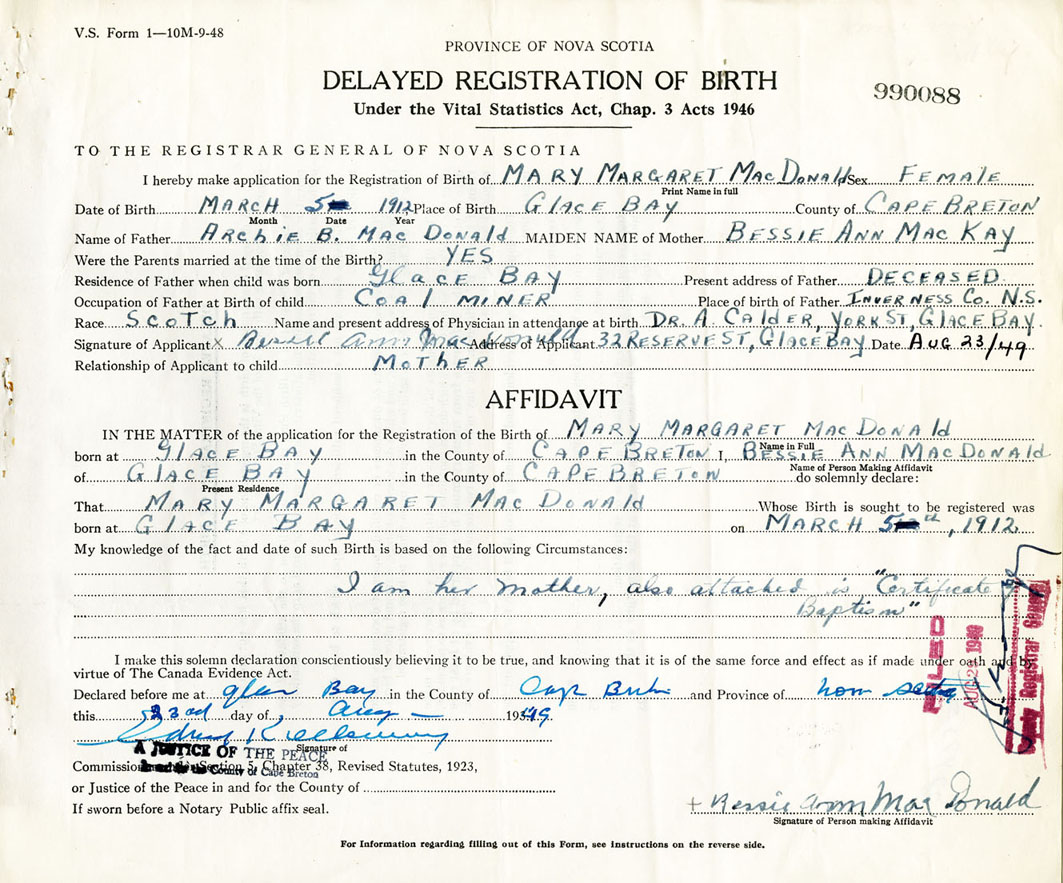 V.S. Form 1—10M-9-48
PROVINCE OF NOVA SCOTIA
DELAYED REGISTRATION OF BIRTH
990088
Under the Vital Statistics Act, Chap. 3 Acts 1946
TO THE REGISTRAR GENERAL OF NOVA SCOTIA
I hereby make application for the Registration of Birth of MARY MARGARET MacDonald Sex FEMALE
Print Name in full
Date of Birth MARCH 5 1912 Place of Birth GLACE BAY County of CAPE BRETON
Month Date Year
Name of Father ARCHIE B. MAC DONALD MAIDEN NAME of Mother BESSIE ANN MAC KAY
Were the Parents married at the time of the Birth? YES
Residence of Father when child was born GLACE BAY Present address of Father DECEASED
Occupation of Father at Birth of child COAL MINER Place of birth of Father INVERNESS CO. N.S.
Race SCOTCH Name and present address of Physician in attendance at birth DR. A. CALDER, YORK ST, GLACE BAY.
Signature of Applicant X Bessie Ann MacDonald Address of Applicant 32 RESERVE ST, GLACE BAY Date AUG 23/49
Relationship of Applicant to child MOTHER
AFFIDAVIT
IN THE MATTER of the application for the Registration of the Birth of MARY MARGARET MAC DONALD
Name in Full
born at GLACE BAY in the County of CAPE BRETON I, BESSIE ANN MACDONALD
Name of Person Making Affidavit
of GLACE BAY in the County of CAPE BRETON do solemnly declare:
Present Residence
That MARY MARGARET MAC DONALD Whose Birth is sought to be registered was
born at GLACE BAY on MARCH 5th, 1912
My knowledge of the fact and date of such Birth is based on the following Circumstances:
I am her mother, also attached is "Certificate
Baptism"
I make this solemn declaration conscientiously believing it to be true, and knowing that it is of the same force and effect as if made under oath and by
virtue of The Canada Evidence Act.
Declared before me at Glace Bay in the County of Cape Breton and Province of Nova Scotia
this 23rd day of Aug 1949
Signature of
A JUSTICE OF THE PEACE
Commission Section 5, Chapter 38, Revised Statutes, 1923,
in the County of Cape Breton
or Justice of the Peace in and for the County of
If sworn before a Notary Public affix seal.
+ Bessie Ann Mac Donald
Signature of Person making Affidavit
For Information regarding filling out of this Form, see instructions on the reverse side.
FILED
AUG 29 1949
Deputy Registrar General